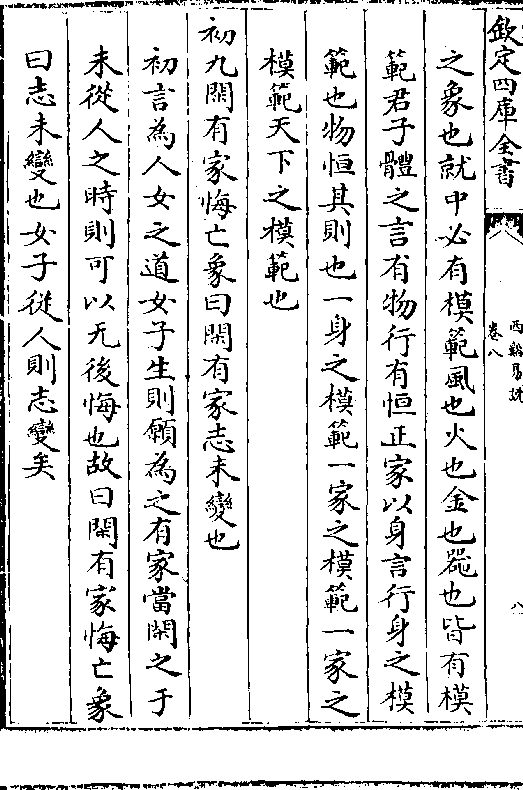 欽定四庫全書
西谿易說
卷八
八
之象也就中必有模範風也火也金也器也皆有模
範君子體之言有物行有恒正家以身言行身之模
範也物恒其則也一身之模範一家之模範一家之
模範天下之模範也
初九閑有家悔亡象曰閑有家志未變也
初言為人女之道女子生則願為之有家當閑之于
未從人之時則可以无後悔也故曰閑有家悔亡象
曰志未變也女子從人則志變矣